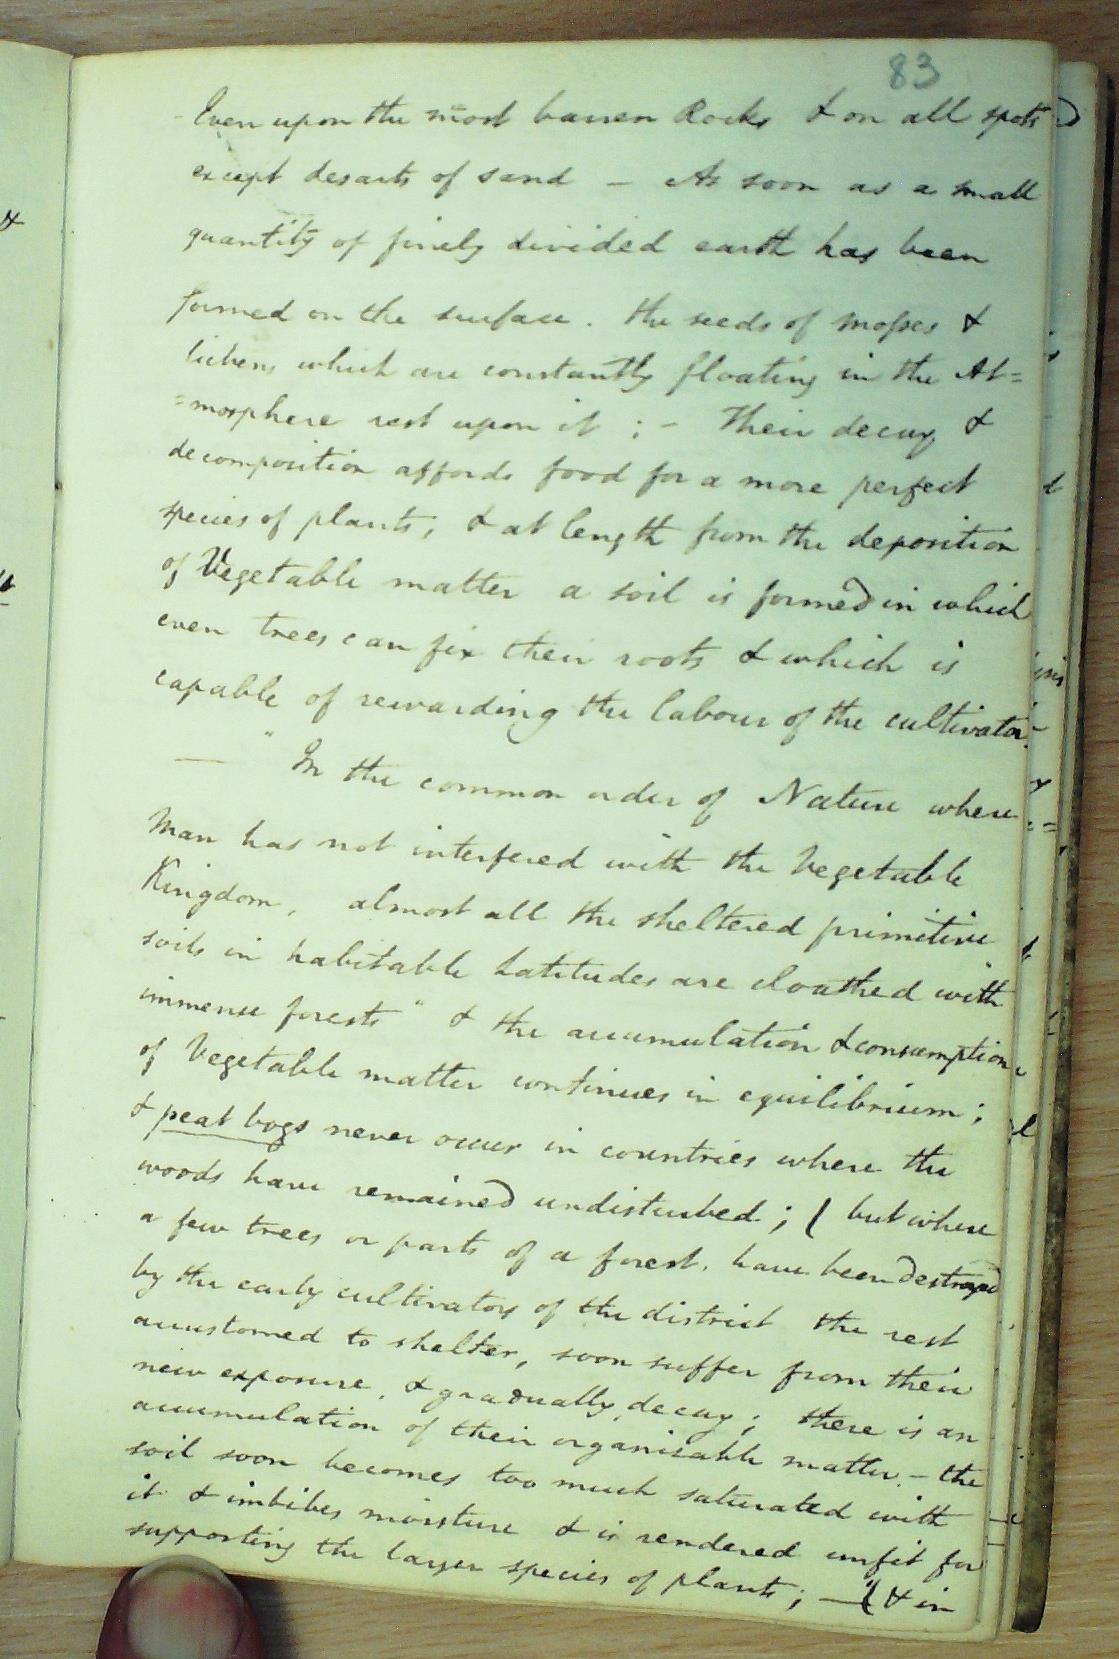 83
Even upon the most barren Rocks & on all spots
except desarts of sand – As soon as a small
quantity of finely divided earth has been
formed on the surface. the seeds of mosses &
lichens which are constantly floating in the At=
=mosphere rest upon it ; – Their decay &
decomposition affords food for a more perfect
species of plants; & at length from the deposition
of Vegetable matter a soil is formed in which
even trees can fix their roots & which is
capable of rewarding the labour of the cultivator.
— " In the common order of Nature where
Man has not interfered with the Vegetable
Kingdom, almost all the sheltered primitive
soils in habitable Latitudes are cloathed with
immense forests " & the accumulation & consumption
of Vegetable matter continues in equilibrium ;
& peat bogs never occur in countries where the
woods have remained undisturbed ; ( but where
a few trees or parts of a forest. have been destroyed
by the early cultivators of the district the rest
accustomed to shelter, soon suffer from their
new exposure. & gradually decay ; there is an
accumulation of their organizable matter – the
soil soon becomes too much saturated with
it & imbibes moisture & is rendered unfit for
supporting the larger species of plants ; — ( & in